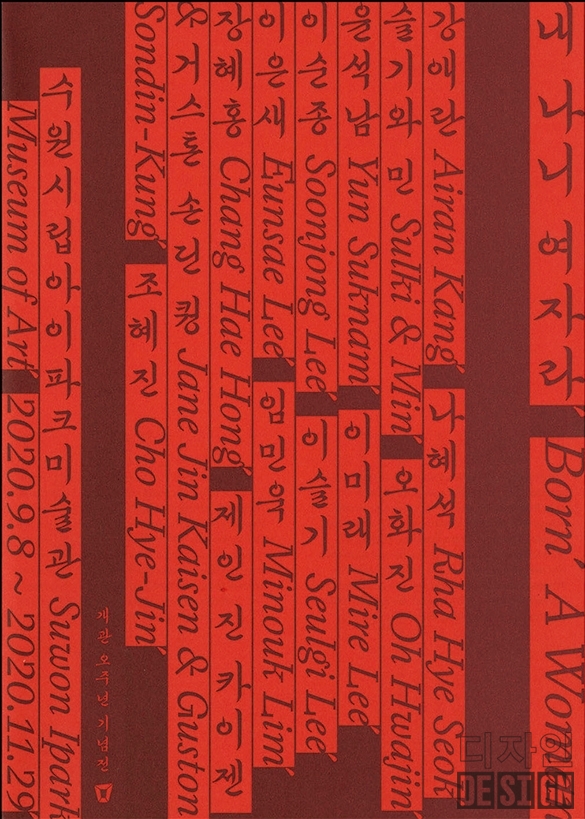 내 나니 여자라,
Born, A Woman
강애란 Airan Kang,
나혜석 Rha Hye Seok,
슬기와 민 Sulki & Min,
오화진 Oh Hwajin,
윤석남 Yun Suknam,
이미래 Mire Lee,
이순종 Soonjong Lee,
이슬기 Seulgi Lee,
이은새 Eunsae Lee,
임민욱 Minouk Lim,
장혜홍 Chang Hae Hong,
제인 진 카이젠
& 거스톤 손딘 퀑 Jane Jin Kaisen & Guston
Sondin-Kung,
조혜진 Cho Hye-Jin,
개관 오주년 기념전
수원시립아이파크미술관 Suwon Ipark
Museum of Art, 2020.9.8 ~ 2020.11.29
디자인
DESIGN